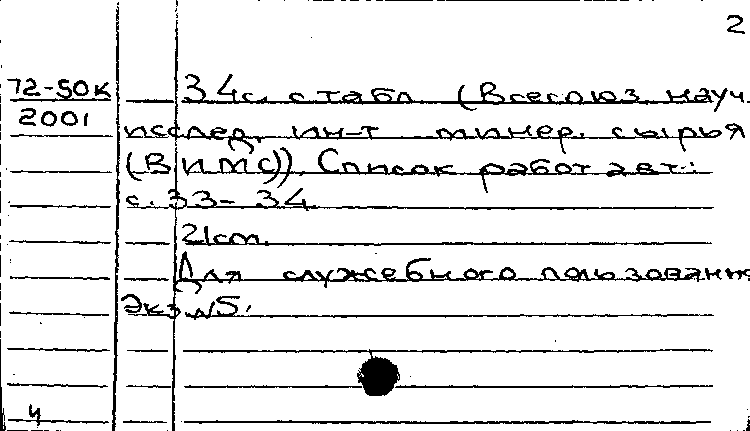 2
72-50к 34с. с табл. (Всесоюз. науч.
2001
исслед. ин-т минер. сырья
(ВИМС)). Список работ авт.:
с. 33-34
21см.
Для служебного пользования
Экз. №5.
4